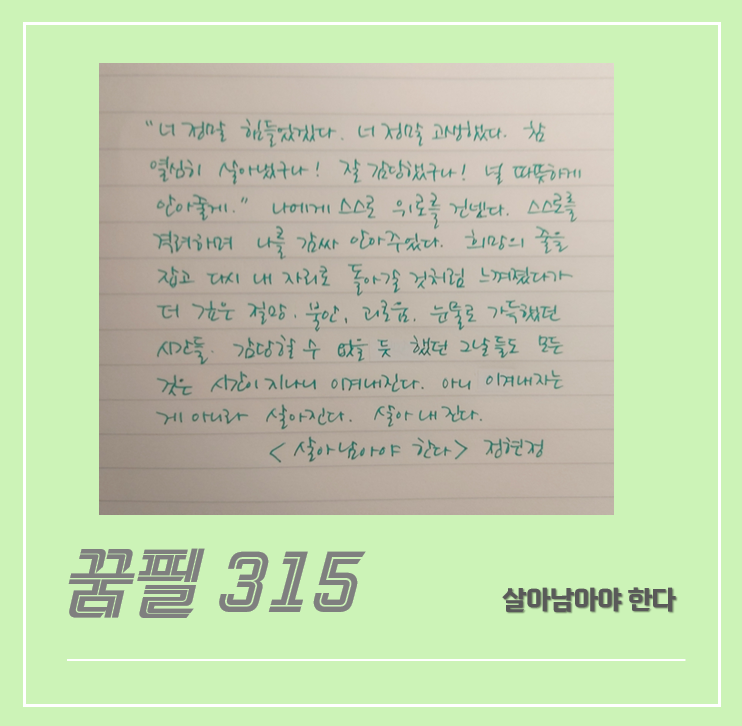 "너 정말 힘들었겠다. 너 정말 고생했다. 참
열심히 살아냈구나! 잘 감당했구나! 널 따뜻하게
안아줄게." 나에게 스스로 위로를 건넸다. 스스로를
격려하며 나를 감싸 안아주었다. 희망의 줄을
잡고 다시 내 자리로 돌아갈 것처럼 느껴졌다가
더 깊은 절망, 불안, 괴로움, 눈물로 가득했던
시간들. 감당할 수 없을 듯 했던 그날들도 모든
것은 시간이 지나니 이겨내진다. 아니 이겨내지는
게 아니라 살아진다. 살아 내진다.
<살아남아야 한다> 정현정
꿈필 315
살아남아야 한다